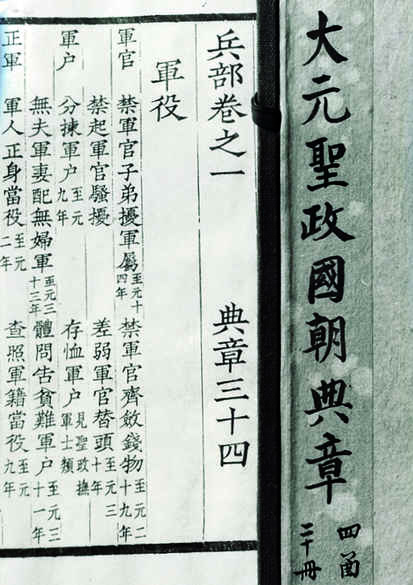 大元聖政國朝典章
四函
二十冊
兵部卷之一　典章三十四
軍役
軍官　禁軍官子弟擾軍屬至元十四年　禁軍官齊斂錢物至元二十九年
禁起軍官騷擾　差弱軍官替頭至元三十年
軍户　分揀軍户至元九年　存恤軍户見聖政撫軍士類
無夫軍妻配無婦軍至元三十三年　體問告貧難軍户至元三十一年
正軍　軍人正身當役至元二年　查照軍籍當役至元九年